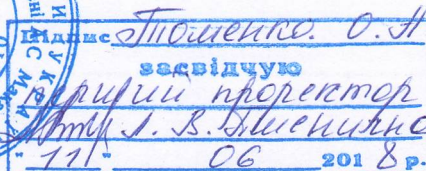 Підпис Томенко. О. А
засвідчую
Перший проректор
Л. В. Пшенична
"11" 06 2018 р.